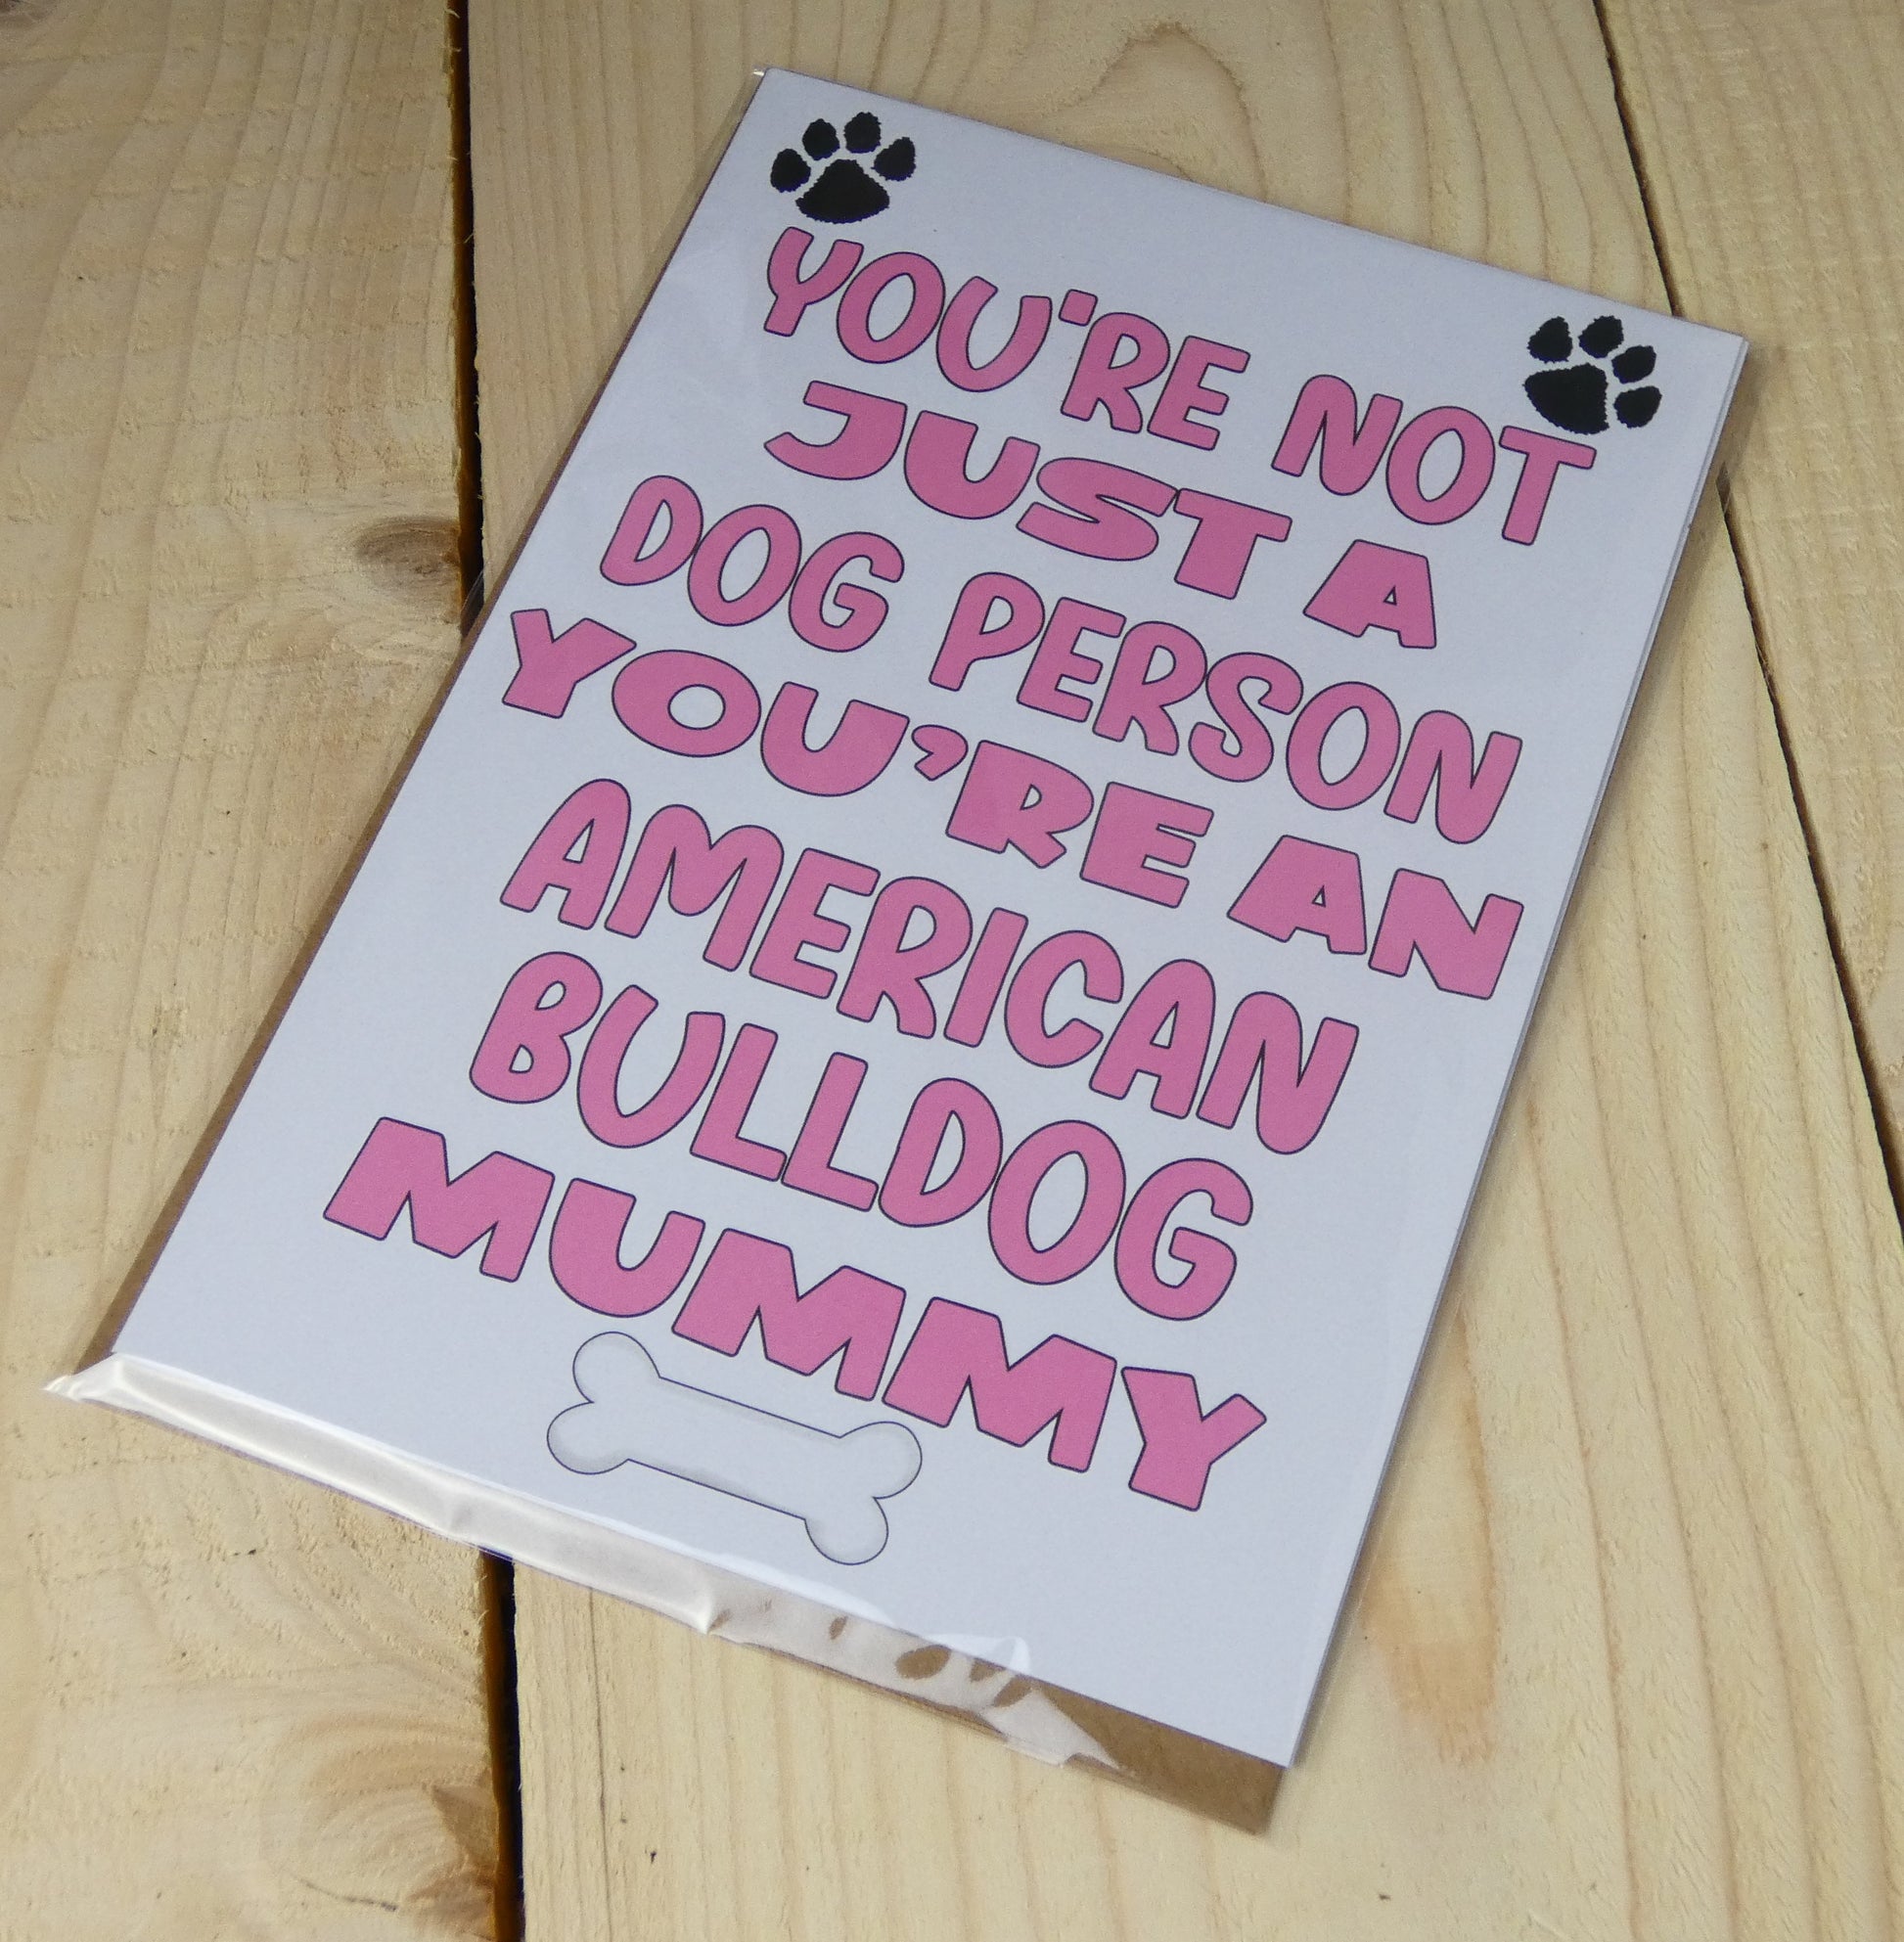 YOU'RE NOT
JUST A
DOG PERSON
YOU'RE AN
AMERICAN
BULLDOG
MUMMY